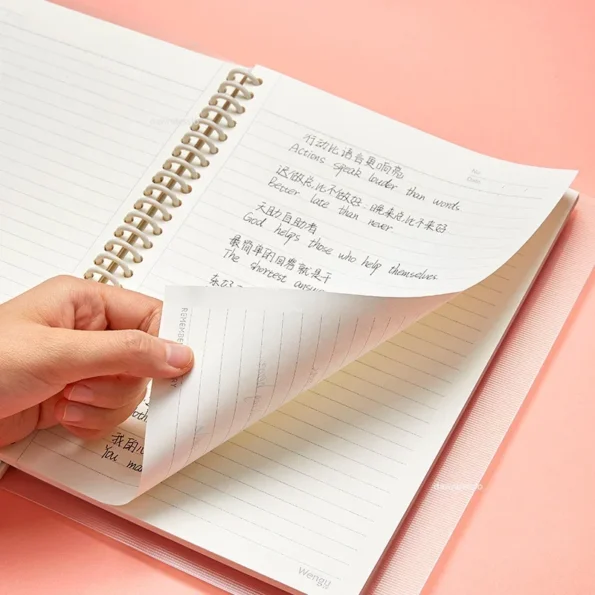 No.
Date
行动比语言更响亮
Actions speak louder than words
迟做总比不做好；晚来总比不来好
Better late than never
天助自助者
God helps those who help themselves
最简单的回答就是干
The shortest answ
REMEMBER
我的
You ma
Wengu